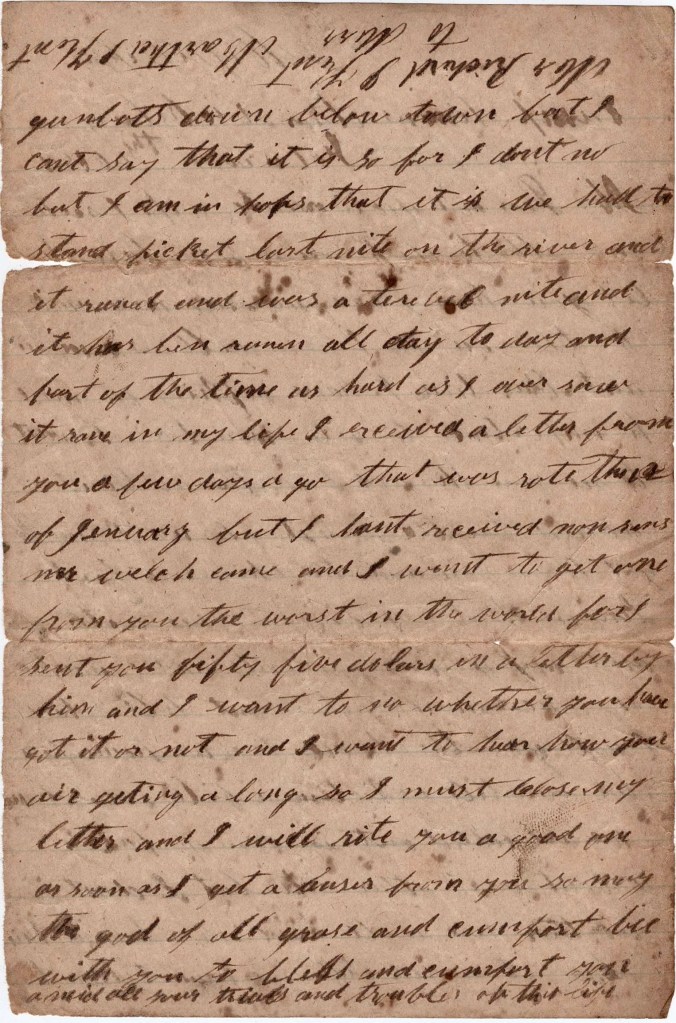 Mr Richard J Kent Martha J Kent
to Mrs
gunbots down below town but I
cant say that it is so for I dont no
but I am in hops that it is we had to
stand picket last nite on the river and
it raned and was a terebel nite and
it has ben ranen all day to day and
part of the time as hard as I ever saw
it rane in my life I received a letter from
you a few days a go that was rote the 12
of Jenuary but I hant received non sens
mr welch came and I want to get one
from you the worst in the world for I
sent you fifty five dolars in a letter by
him and I want to no whether you have
got it or not and I want to hear how you
air geting a long so I must close my
letter and I will rite you a good one
as soon as I get a anser from you so may
the god of all grase and cumfort bee
with you to bless and cumfort you
amid all your trials and troubles of this life